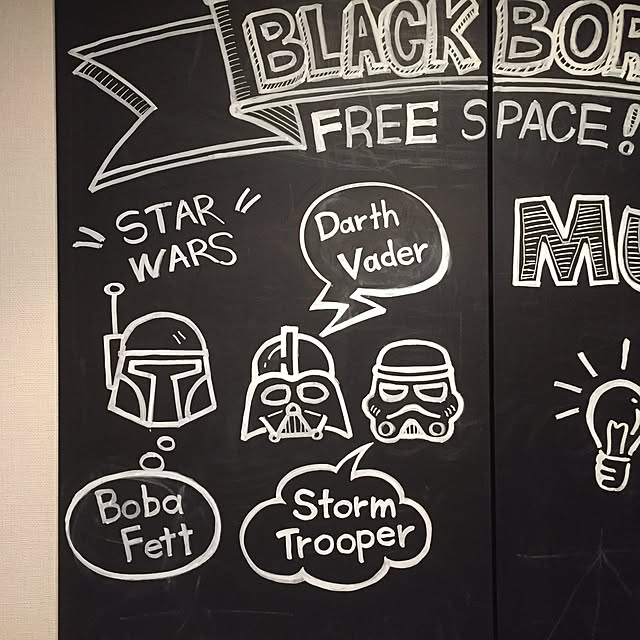 BLACK BOR
FREE SPACE!
STAR
WARS
Darth
Vader
MU
Boba
Fett
Storm
Trooper